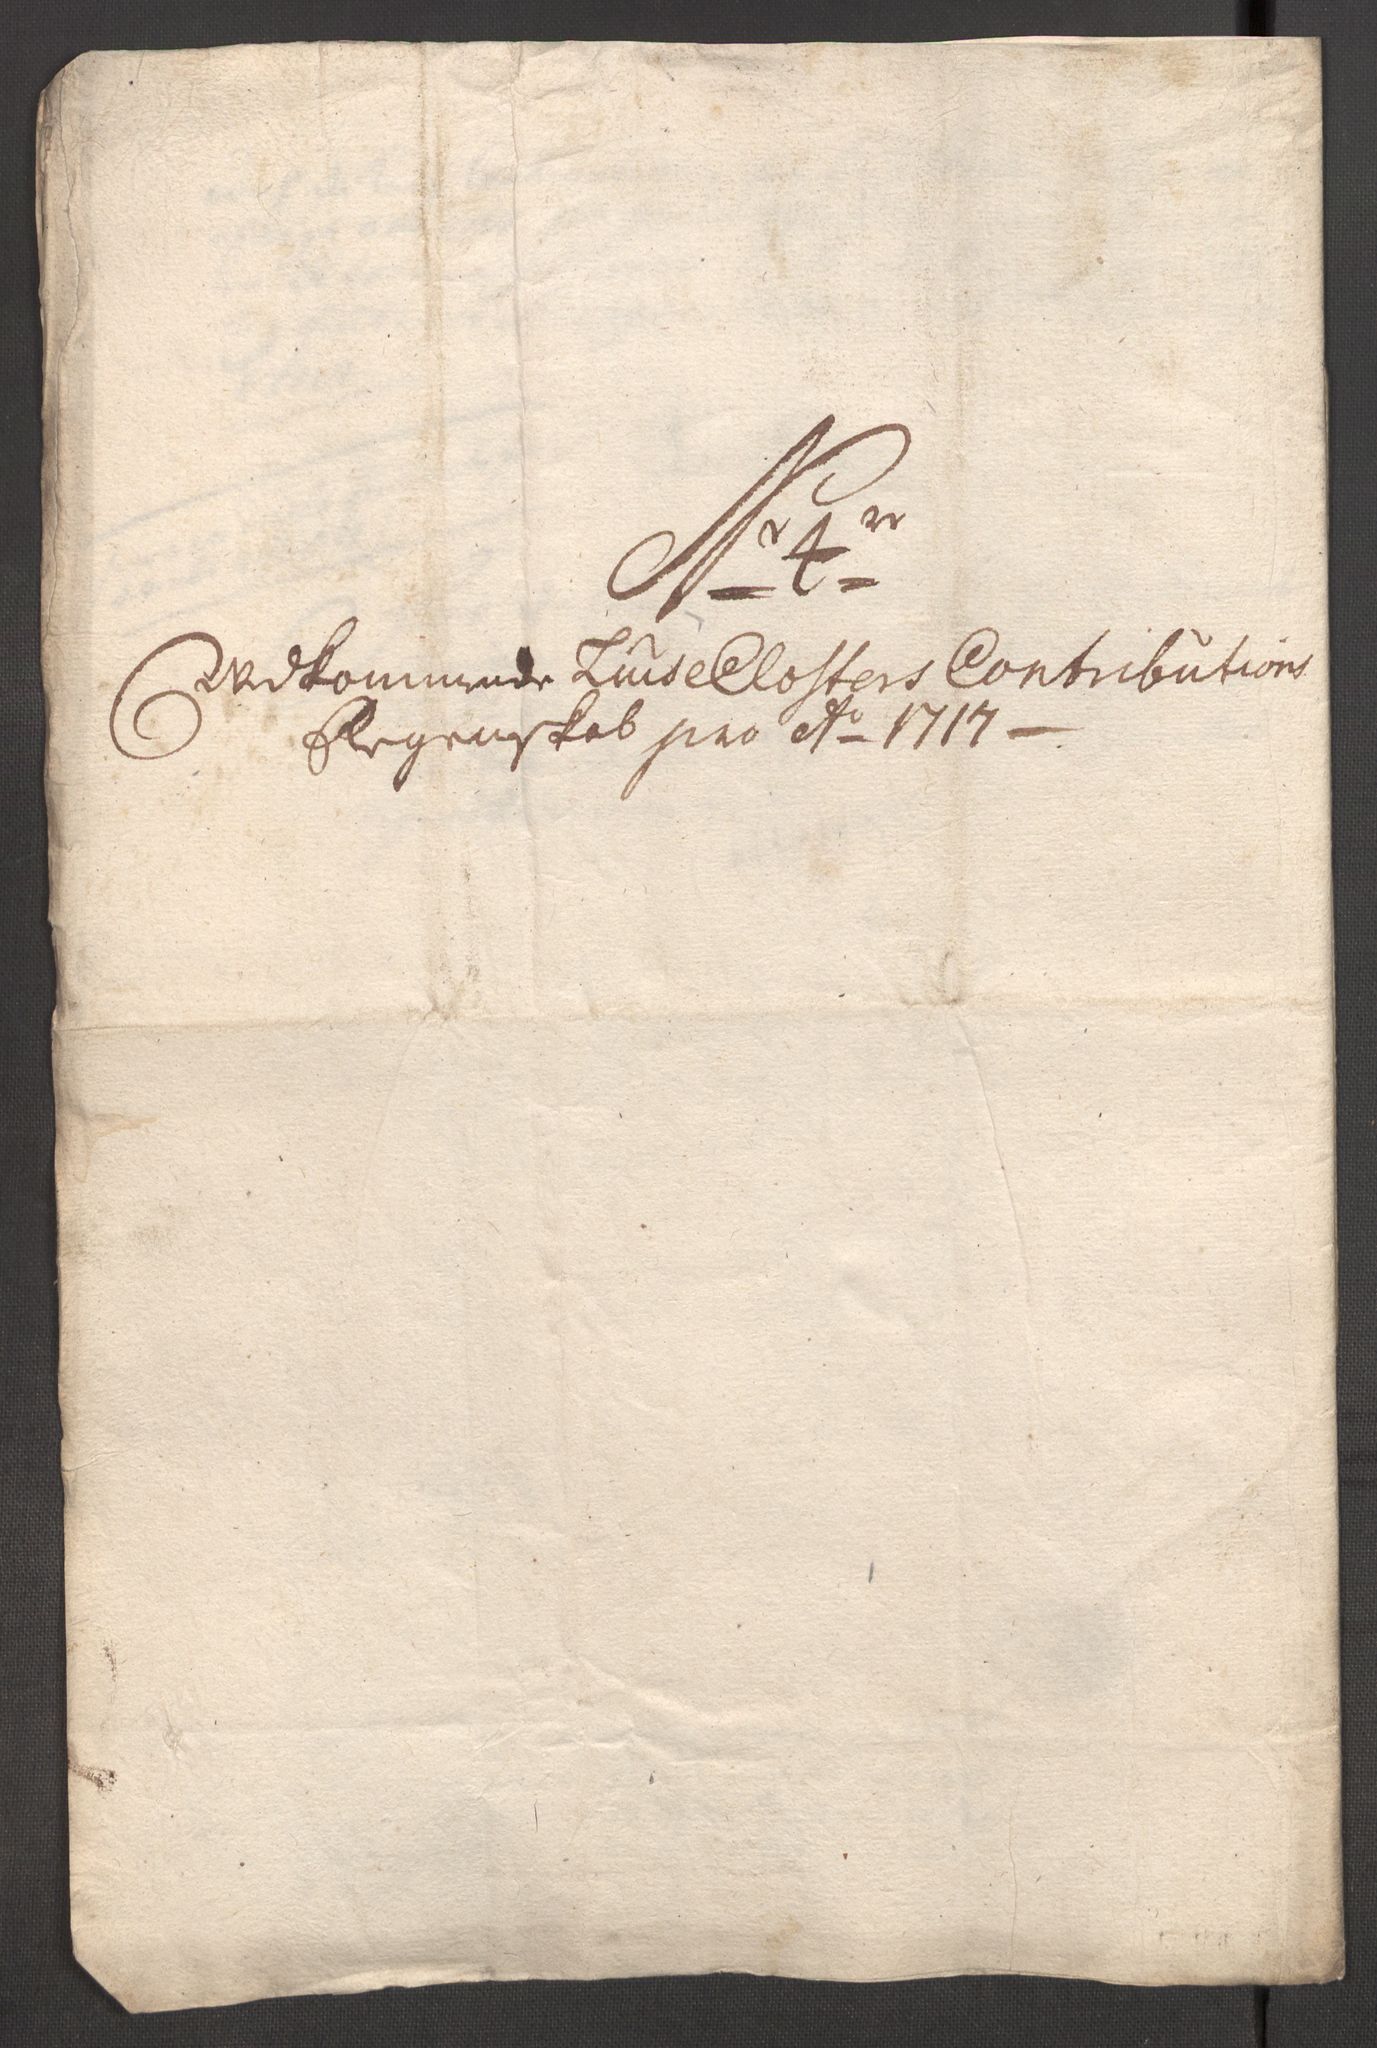 Nr 4
Vedkommende Lüse Closters Contributions
Regenskab pro Ao 1717